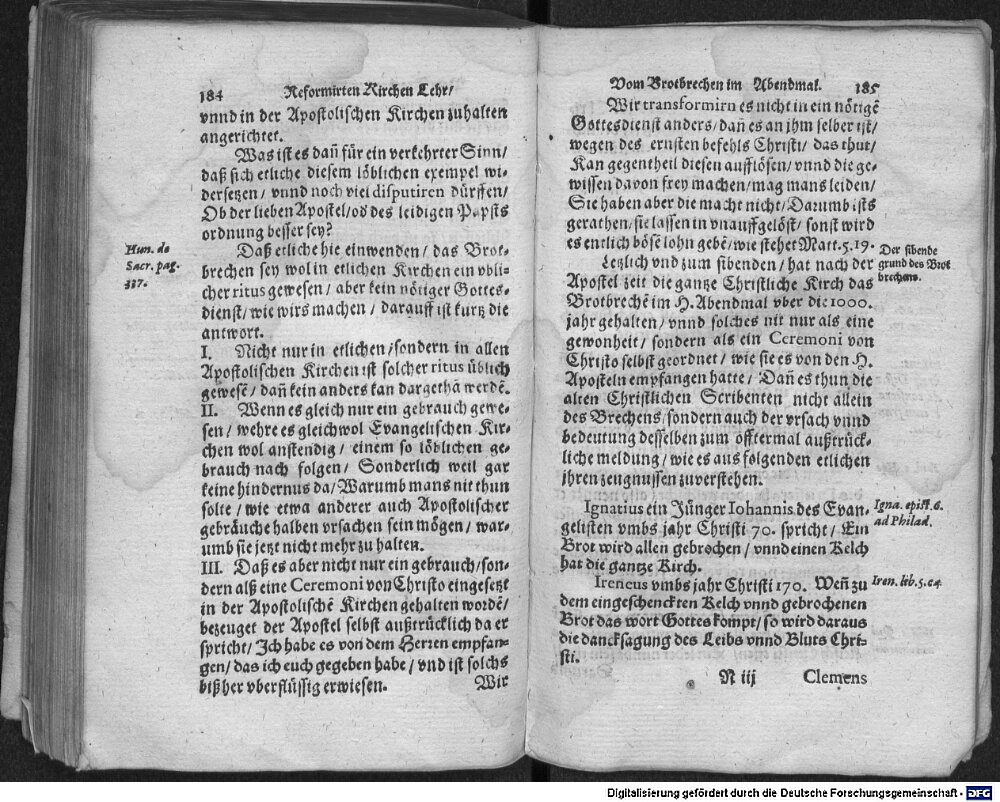 184 Reformirten Kirchen Lehr/
vnnd in der Apostolischen Kirchen zuhalten
angerichtet.
Was ist es dañ für ein verkehrter Sinn/
daß sich etliche diesem löblichen exempel wi-
dersetzen/ vnnd noch viel disputiren dürffen/
Ob der lieben Apostel/ od̕ des leidigen Papsts
ordnung besser sey?
Hun. de
Sacr. pag.
337.
Daß etliche hie einwenden/ das Brot-
brechen sey wol in etlichen Kirchen ein vbli-
cher ritus gewesen/ aber kein nötiger Gottes-
dienst/ wie wirs machen/ darauff ist kurtz die
antwort.
I. Nicht nur in etlichen/ sondern in allen
Apostolischen Kirchen ist solcher ritus üblich
gewesẽ/ dañ kein anders kan dargethã werdẽ.
II. Wenn es gleich nur ein gebrauch gewe-
sen/ wehre es gleichwol Evangelischen Kir-
chen wol anstendig/ einem so löblichen ge-
brauch nach folgen/ Sonderlich weil gar
keine hindernus da/ Warumb mans nit thun
solte/ wie etwa anderer auch Apostolischer
gebräuche halben vrsachen sein mögen/ war-
umb sie jetzt nicht mehr zu halten.
III. Daß es aber nicht nur ein gebrauch/ son-
dern alß eine Ceremoni von Christo eingesetzt
in der Apostolischẽ Kirchen gehalten wordẽ/
bezeuget der Apostel selbst außtrücklich da er
spricht/ Ich habe es von dem Herren empfan-
gen/ das ich euch gegeben habe/ vnd ist solchs
bißher vberflüssig erwiesen. Wir
Vom Brotbrechen im Abendmal. 185
Wir transformirn es nicht in ein nötigẽ
Gottesdienst anders/ dañ es an jhm selber ist/
wegen des ernsten befehls Christi/ das thut/
Kan gegentheil diesen aufflösen/ vnnd die ge-
wissen davon frey machen/ mag mans leiden/
Sie haben aber die macht nicht/ Darumb ists
gerathen/ sie lassen in vnauffgelöst/ sonst wird
es entlich bösẽ lohn gebẽ/ wie stehet Matt. 5. 19.
Letzlich vnd zum sibenden/ hat nach der
Der sibende
grund des Brot
brechens.
Apostel zeit die gantze Christliche Kirch das
Brotbrechẽ im H. Abendmal vber die 1000.
jahr gehalten/ vnnd solches nit nur als eine
gewonheit/ sondern als ein Ceremoni von
Christo selbst geordnet/ wie sie es von den H.
Aposteln empfangen hatte/ Dañ es thun die
alten Christlichen Scribenten nicht allein
des Brechens/ sondern auch der vrsach vnnd
bedeutung desselben zum öfftermal außtrück-
liche meldung/ wie es aus folgenden etlichen
jhren zeugnussen zuverstehen.
Ignatius ein Jünger Iohannis des Evan-
gelisten vmbs jahr Christi 70. spricht/ Ein
Brot wird allen gebrochen/ vnnd einen Kelch
hat die gantze Kirch.
Igna. epist. 6.
ad Philad.
Ireneus vmbs jahr Christi 170. Weñ zu
dem eingeschenckten Kelch vnnd gebrochenen
Brot das wort Gottes kompt/ so wird daraus
die dancksagung des Leibs vnnd Bluts Chri-
sti.
Iren. lib. 5. c 4.
N iij Clemens
Digitalisierung gefördert durch die Deutsche Forschungsgemeinschaft - DFG